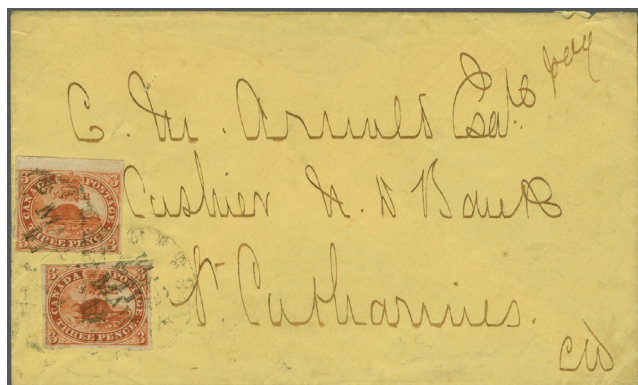 C. M. Arnold Esq.
Cashier N. D Bank
St. Catharines.
CW
CANADA POSTAGE
THREE PENCE
3 3 3 3
CANADA POSTAGE
THREE PENCE
3 3 3 3